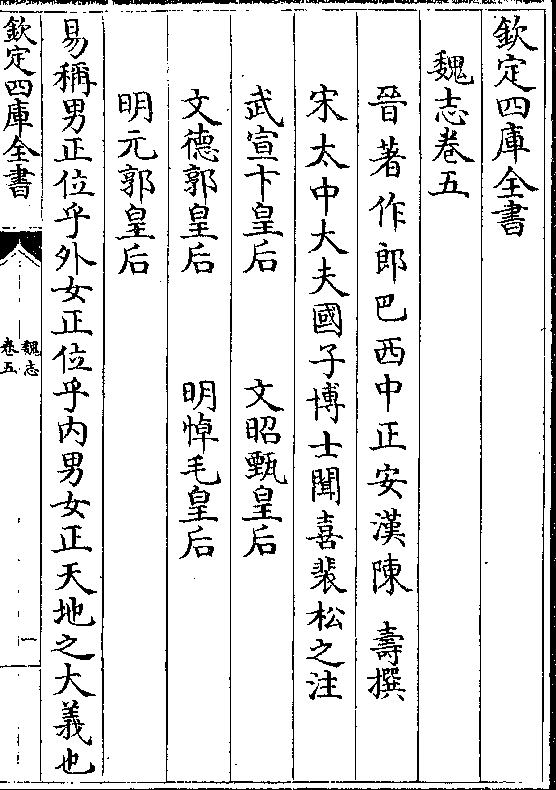 欽定四庫全書
魏志卷五
晉著作郎巴西中正安漢陳壽撰
宋太中大夫國子博士聞喜裴松之注
武宣卞皇后 文昭甄皇后
文德郭皇后 明悼毛皇后
明元郭皇后
易稱男正位乎外女正位乎内男女正天地之大義也
欽定四庫全書
魏志
卷五
一